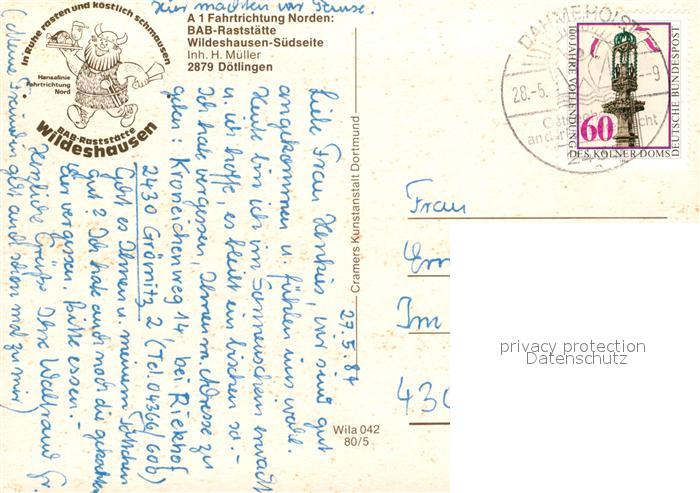 hier machten wir Pause.
In Ruhe rasten und köstlich schmausen
Hansalinie
Fahrtrichtung
Nord
BAB-Raststätte
Wildeshausen
A 1 Fahrtrichtung Norden:
BAB-Raststätte
Wildeshausen-Südseite
Inh. H. Müller
2879 Dötlingen
27.5.84
Liebe Frau Henkies, wir sind gut
angekommen u. fühlen uns wohl.
Heute bin ich im Sonnenschein erwacht
u. ich hoffe, es bleibt ein bischen so. –
Ich habe vergessen, Ihnen m. Adresse zu
geben: Kroneichenweg 14, bei Riekhof
2430 Grömitz 2 (Tel. 04366/606)
Geht es Ihnen u. meinem
gut? Ich hab auch noch die gekochten
Eier vergessen. Bitte essen. –
Herzliche Grüße Ihre Waltraud
(Meine Freundin geht auch schon mal zu mir)
Cramers Kunstanstalt Dortmund
Wila 042
80/5
DAHME HOLST
28.-5.
-9
100 JAHRE VOLLENDUNG
DES KÖLNER DOMS
DEUTSCHE BUNDESPOST
60
Frau
Em
Im
430
privacy protection
Datenschutz